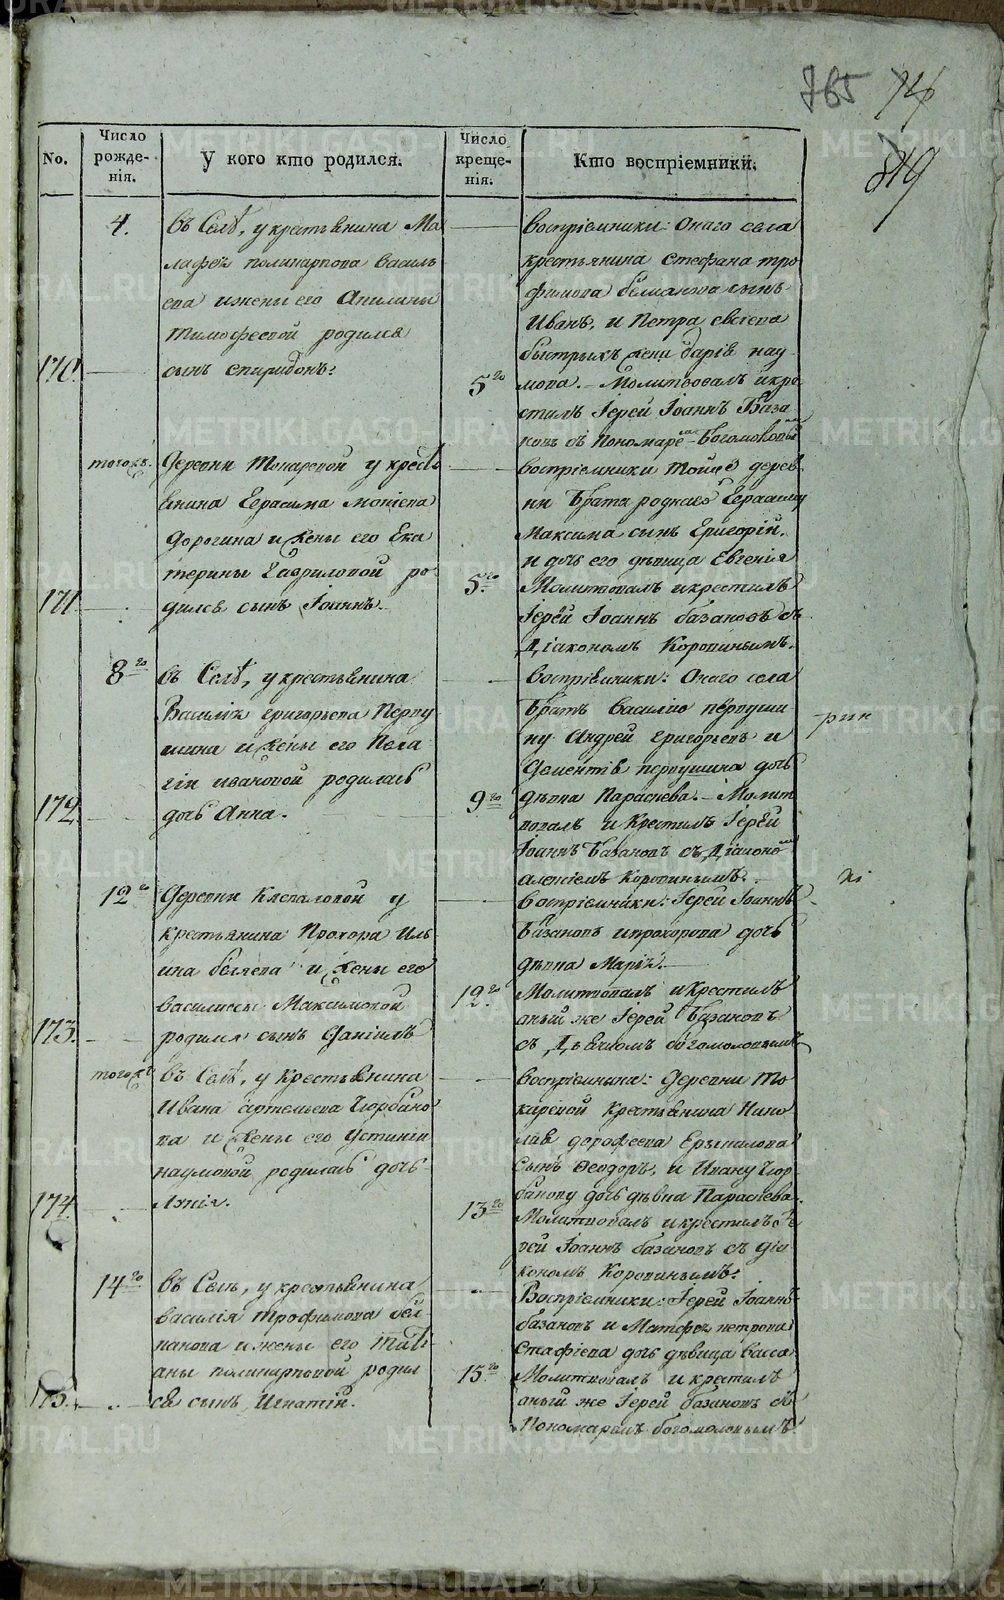 765
819
No.
Число рожденія.
У кого кто родился.
Число крещенія.
Кто воспріемники.
4.
въ Селѣ, у крестьянина Ма
лафея поликарпова василь
ева и жены его Акилины
тимофеевой родился
170.
сынъ спиридонъ:
воспріемники: Онаго села
крестьянина Стефана тро
фимова сынъ
Иванъ, и Петра евсіева
быстрыхъ жена дарія нау
5го
мова. – Молитвовалъ и кре
стилъ Іерей Іоаннъ База
новъ съ Пономаремъ Богомоловымъ
тогожъ.
Деревни Токаревой у кресть
янина Герасима мокіева
дорогина и жены его Ека
терины Гавриловой ро
171.
дился сынъ Іоаннъ.
воспріемники тойже дерев
ни Брата роднаго Герасиму
Максима сынъ Григорій.
и дочь его дѣвица Евгенія
5го
Молитвовалъ и крестилъ
Іерей Іоаннъ базановъ съ
Діакономъ Коровинымъ.
8го
въ Селѣ, у крестьянина
Василія григорьева Перву
шина и жены его Пела
гіи ивановой родилась
172.
дочь Анна.
воспріемники: Онаго села
братъ василію первуши
ну Андрей григорьевъ и
Дементія первушина дочь
9го
дѣвка Параскева. – Молит
вовалъ и Крестилъ Іерей
Іоаннъ Базановъ съ Діакономъ
алексіемъ Коровинымъ.
12го
Деревни Клевакиной у
крестьянина Прохора Иль
ина бѣляева и жены его
василисы Максимовой
173.
родился сынъ Даніилъ
воспріемники: Іерей Іоаннъ
Базановъ и прохорова дочь
дѣвка Марія.
12го
Молитвовалъ и крестилъ
оный же Іерей Базановъ
съ Дьячкомъ богомоловымъ
тогожъ
въ Селѣ, у Крестьянина
Ивана артемьева Чорбано
ва и жены его Устиніи
наумовой родилась дочь
174.
воспріемники: Деревни То
каревой Крестьянина Нико
лая дорофеева
сынъ Ѳеодоръ, и Ивану Чор
банову дочь дѣвка Параскева.
13го
Молитвовалъ и крестилъ Іе
рей Іоаннъ базановъ съ діа
кономъ Коровинымъ:
14го
въ Селѣ, у крестьянина
василія трофимова
и жены его Татья
ны поликарповой родил
175.
ся сынъ Игнатій.
Воспріемники: Іерей Іоаннъ
базановъ и Матфея петрова
дочь дѣвица васса
15го
Молитвовалъ и крестилъ
оный же Іерей базановъ съ
Пономаремъ богомоловымъ
METRIKI.GASO-URAL.RU